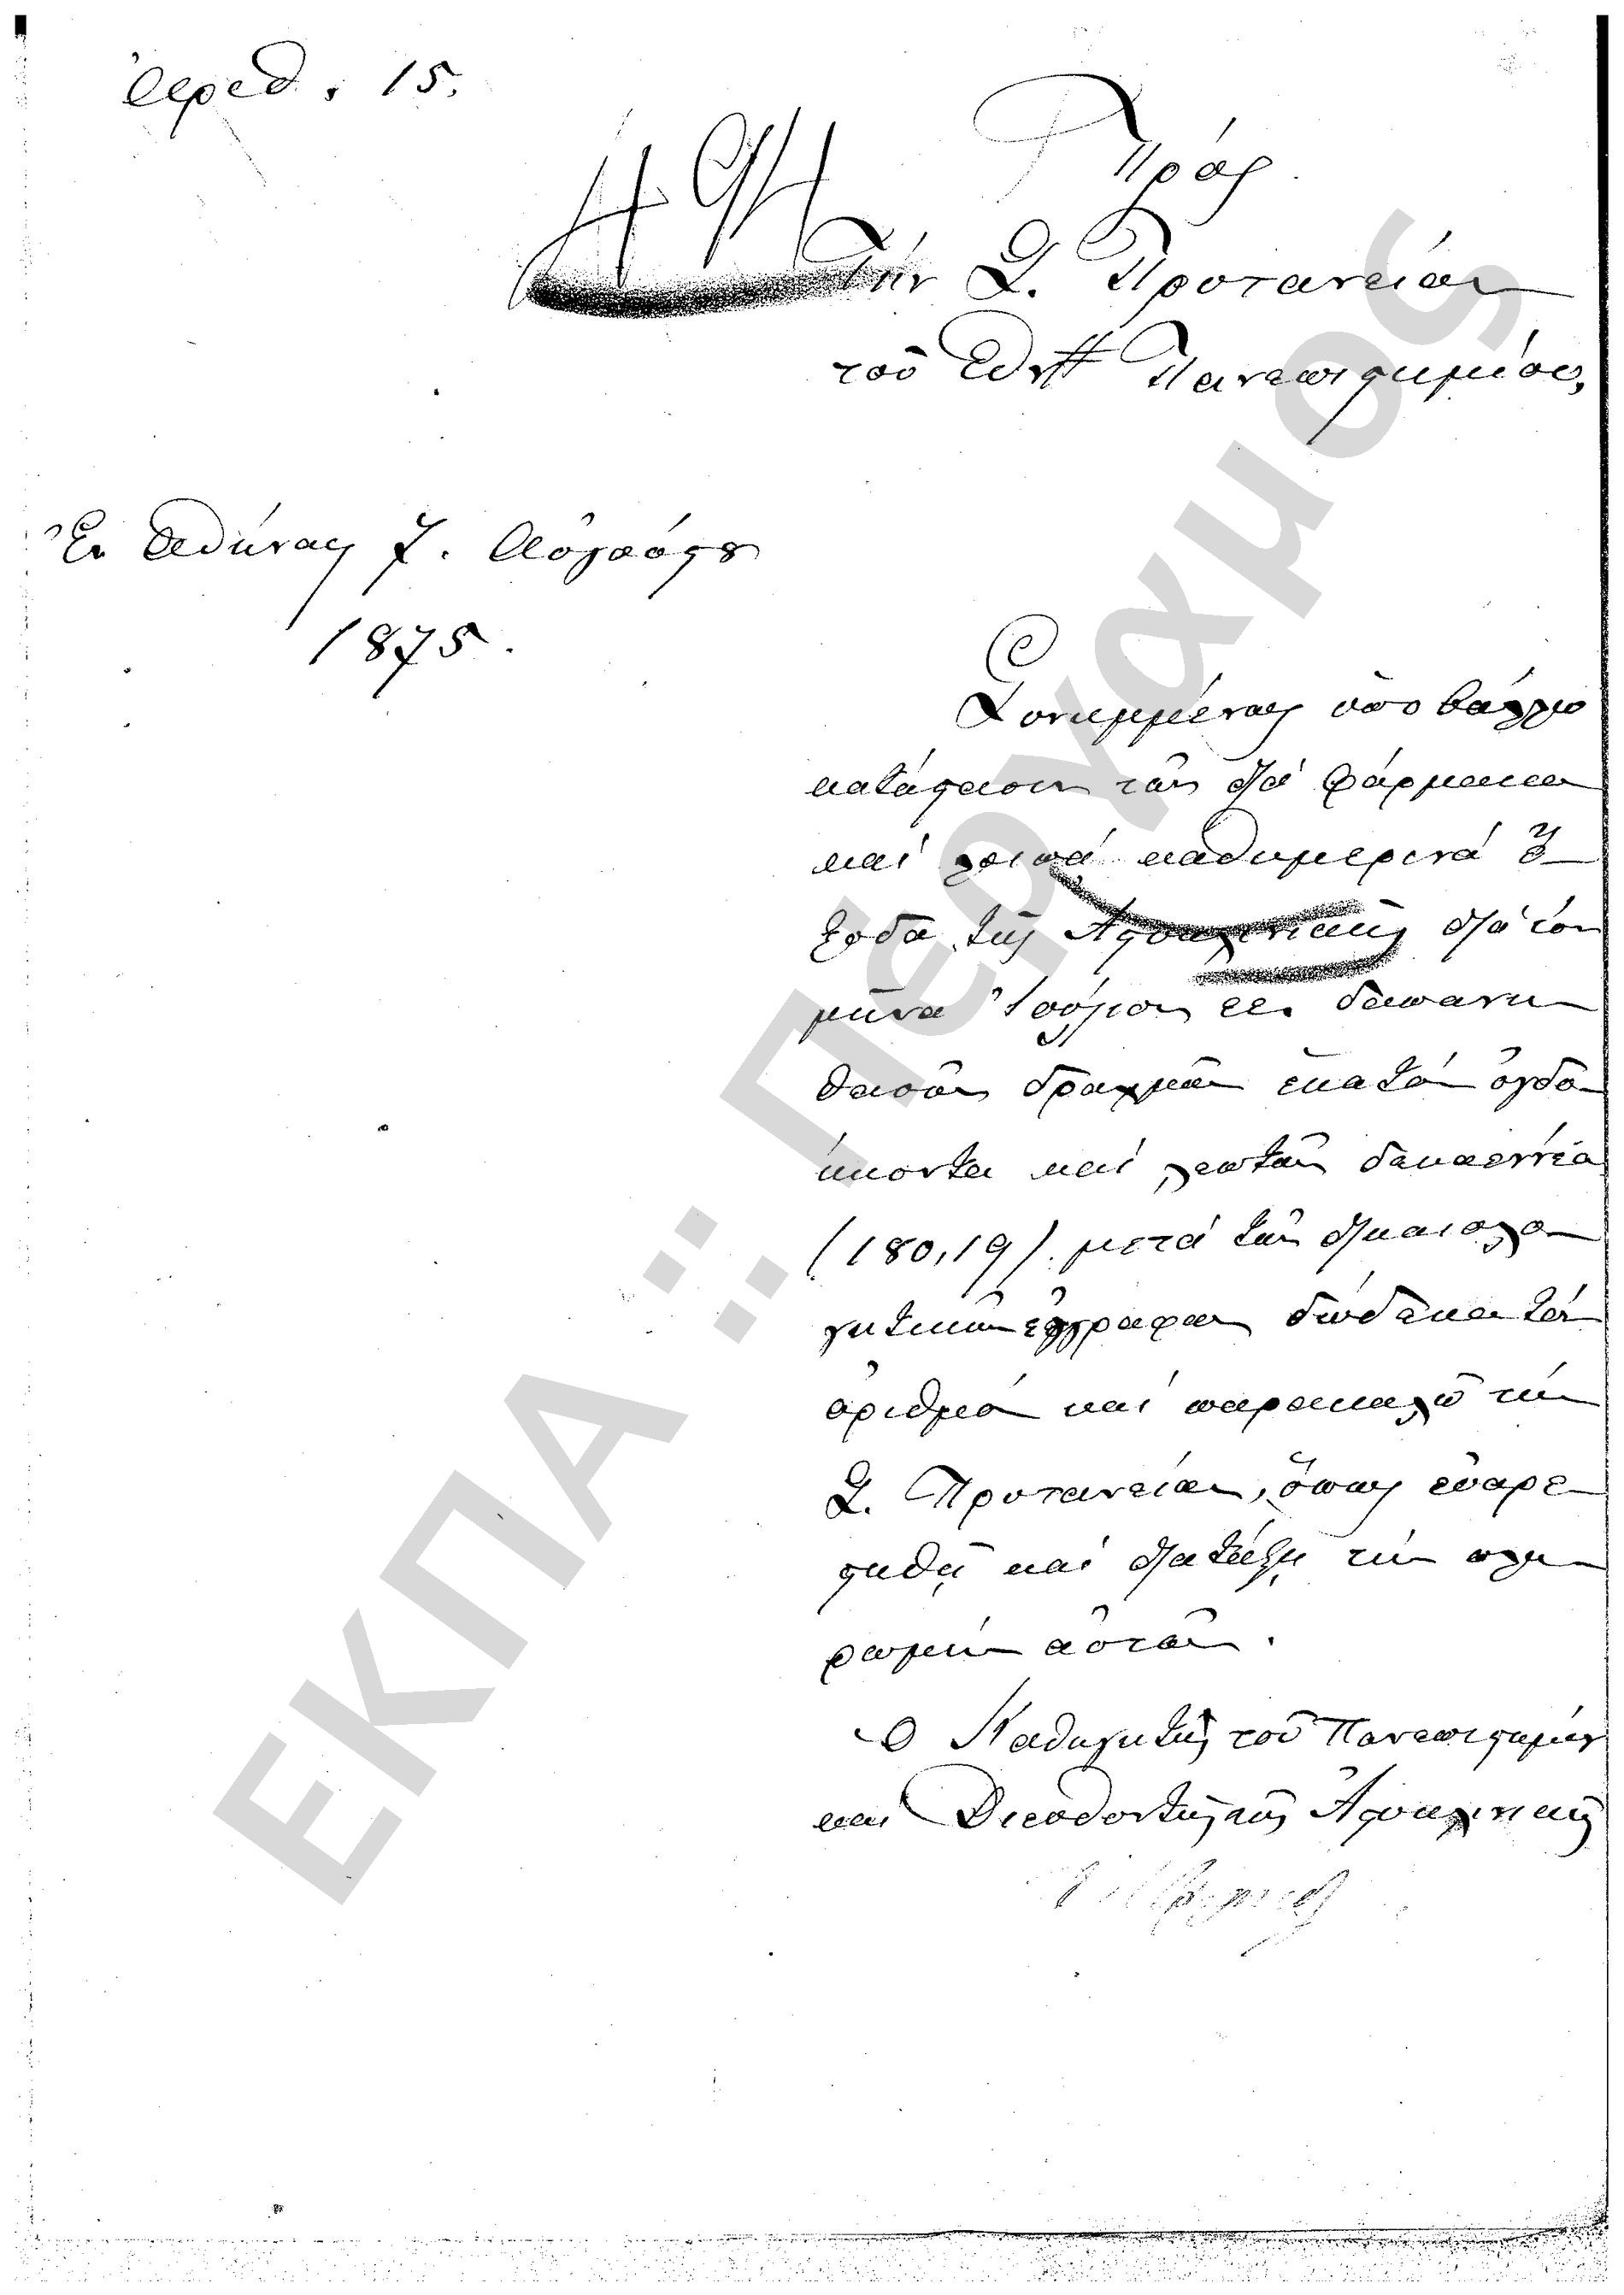 Ἀριθ. 15.
Πρὸς
Τὴν Σ. Πρυτανείαν
τοῦ Ἐθν. Πανεπιστημίου,
Ἐν Ἀθήναις 7. Αὐγούστου
1875.
Συνημμένως ὑποβάλλω
κατάστασιν τῶν διὰ φάρμακα
καὶ λοιπὰ καθημερινὰ ἔ-
ξοδα τῆς Ἀστυκλινικῆς διὰ τὸν
μῆνα Ἰούλιον ἐ.ἔ. δαπανη
θεισῶν δραχμῶν ἑκατὸν ὀγδο-
ήκοντα καὶ λεπτῶν δεκαεννέα
(180,19) μετὰ τῶν δικαιολο-
γητικῶν ἐγγράφων δώδεκα τὸν
ἀριθμὸν καὶ παρακαλῶ τὴν
Σ. Πρυτανείαν, ὅπως εὐαρε-
στηθῇ καὶ διατάξῃ τὴν πλη-
ρωμὴν αὐτῶν.
Ὁ Καθηγητὴς τοῦ Πανεπιστημίου
καὶ Διευθυντὴς τῆς Ἀστυκλινικῆς
ΕΚΠΑ :: Πέργαμος